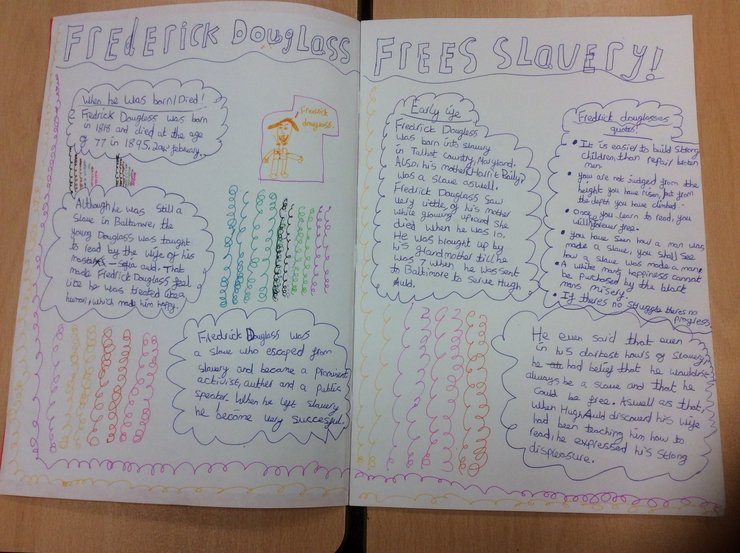 FREDERICK DOUGLASS FREES SLAVERY!
When he was born/Died!
Fredrick Douglass was born
in 1818 and died at the age
of 77 in 1895, 20th february.
Fredrick
douglass.
Although he was still a
slave in Baltamore the
young Douglass was taught
to read by the wife of his
master - Sofia auld. That
made Fredrick Douglass feel
like he was treated like a
human, which made him happy.
Fredrick Douglass was
a slave who escaped from
slavery and became a prominent
activist, auther and a public
speaker. When he left slavery
he became very succesful.
Early life
Fredrick Douglass
was born into slavery
in Talbot country, Maryland.
Also, his mother, Harriet Bailey
was a slave aswell.
Fredrick Douglass saw
very little of his mother
while growing up and she
died when he was 10.
He was brought up by
his grandmother till he
was 7 when he was sent
to Baltimore to serve Hugh
Auld.
Fredrick douglasses
quotes!
It is easier to build strong
children, than repair broken
men.
you are not judged from the
height you have risen, but from
the depth you have climbed
Once you learn to read, you
will forever free.
you have seen how a man was
made a slave, you shall see
how a slave was made a man.
A white mans happiness cannot
be purchased by the black
mans misery.
If theres no struggle theres no
progress.
He even said that even
in his darkest hours of slavery
he had belief that he wouldn't
always be a slave and that he
could be free. Aswell as that,
when Hugh Auld discoverd his wife
had been teaching him how to
read, he expressed his strong
displeasure.